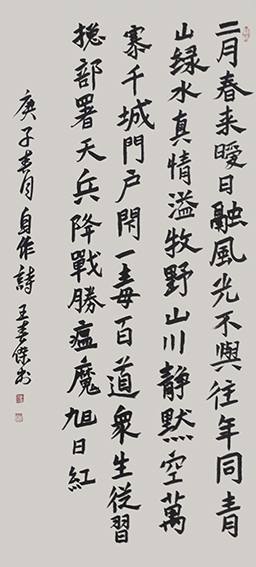 二月春来曖日融風光不與往年同青
山绿水真情溢牧野山川靜默空萬
寨千城門户閉一毒百道衆生從習
揔部署天兵降戰勝瘟魔旭日紅
庚子春月自作詩王春傑书